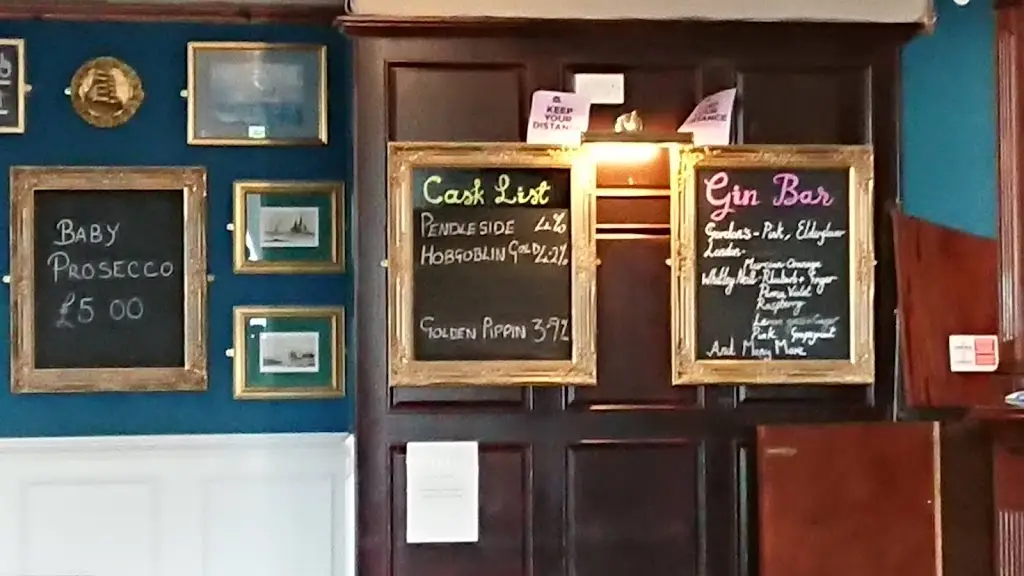 BABY
PROSECCO
£5 00
KEEP
YOUR
DISTAN
Cask List
PENDLESIDE 4%
HOBGOBLIN GOLD 4.2%
GOLDEN PIPPIN 3.9%
Gin Bar
Gordon's - Pink, Elderflower
London
Mexican Orange
Whitley Neill - Rhubarb + Ginger
Parma Violet
Raspberry
Pink Grapefruit
And Many More